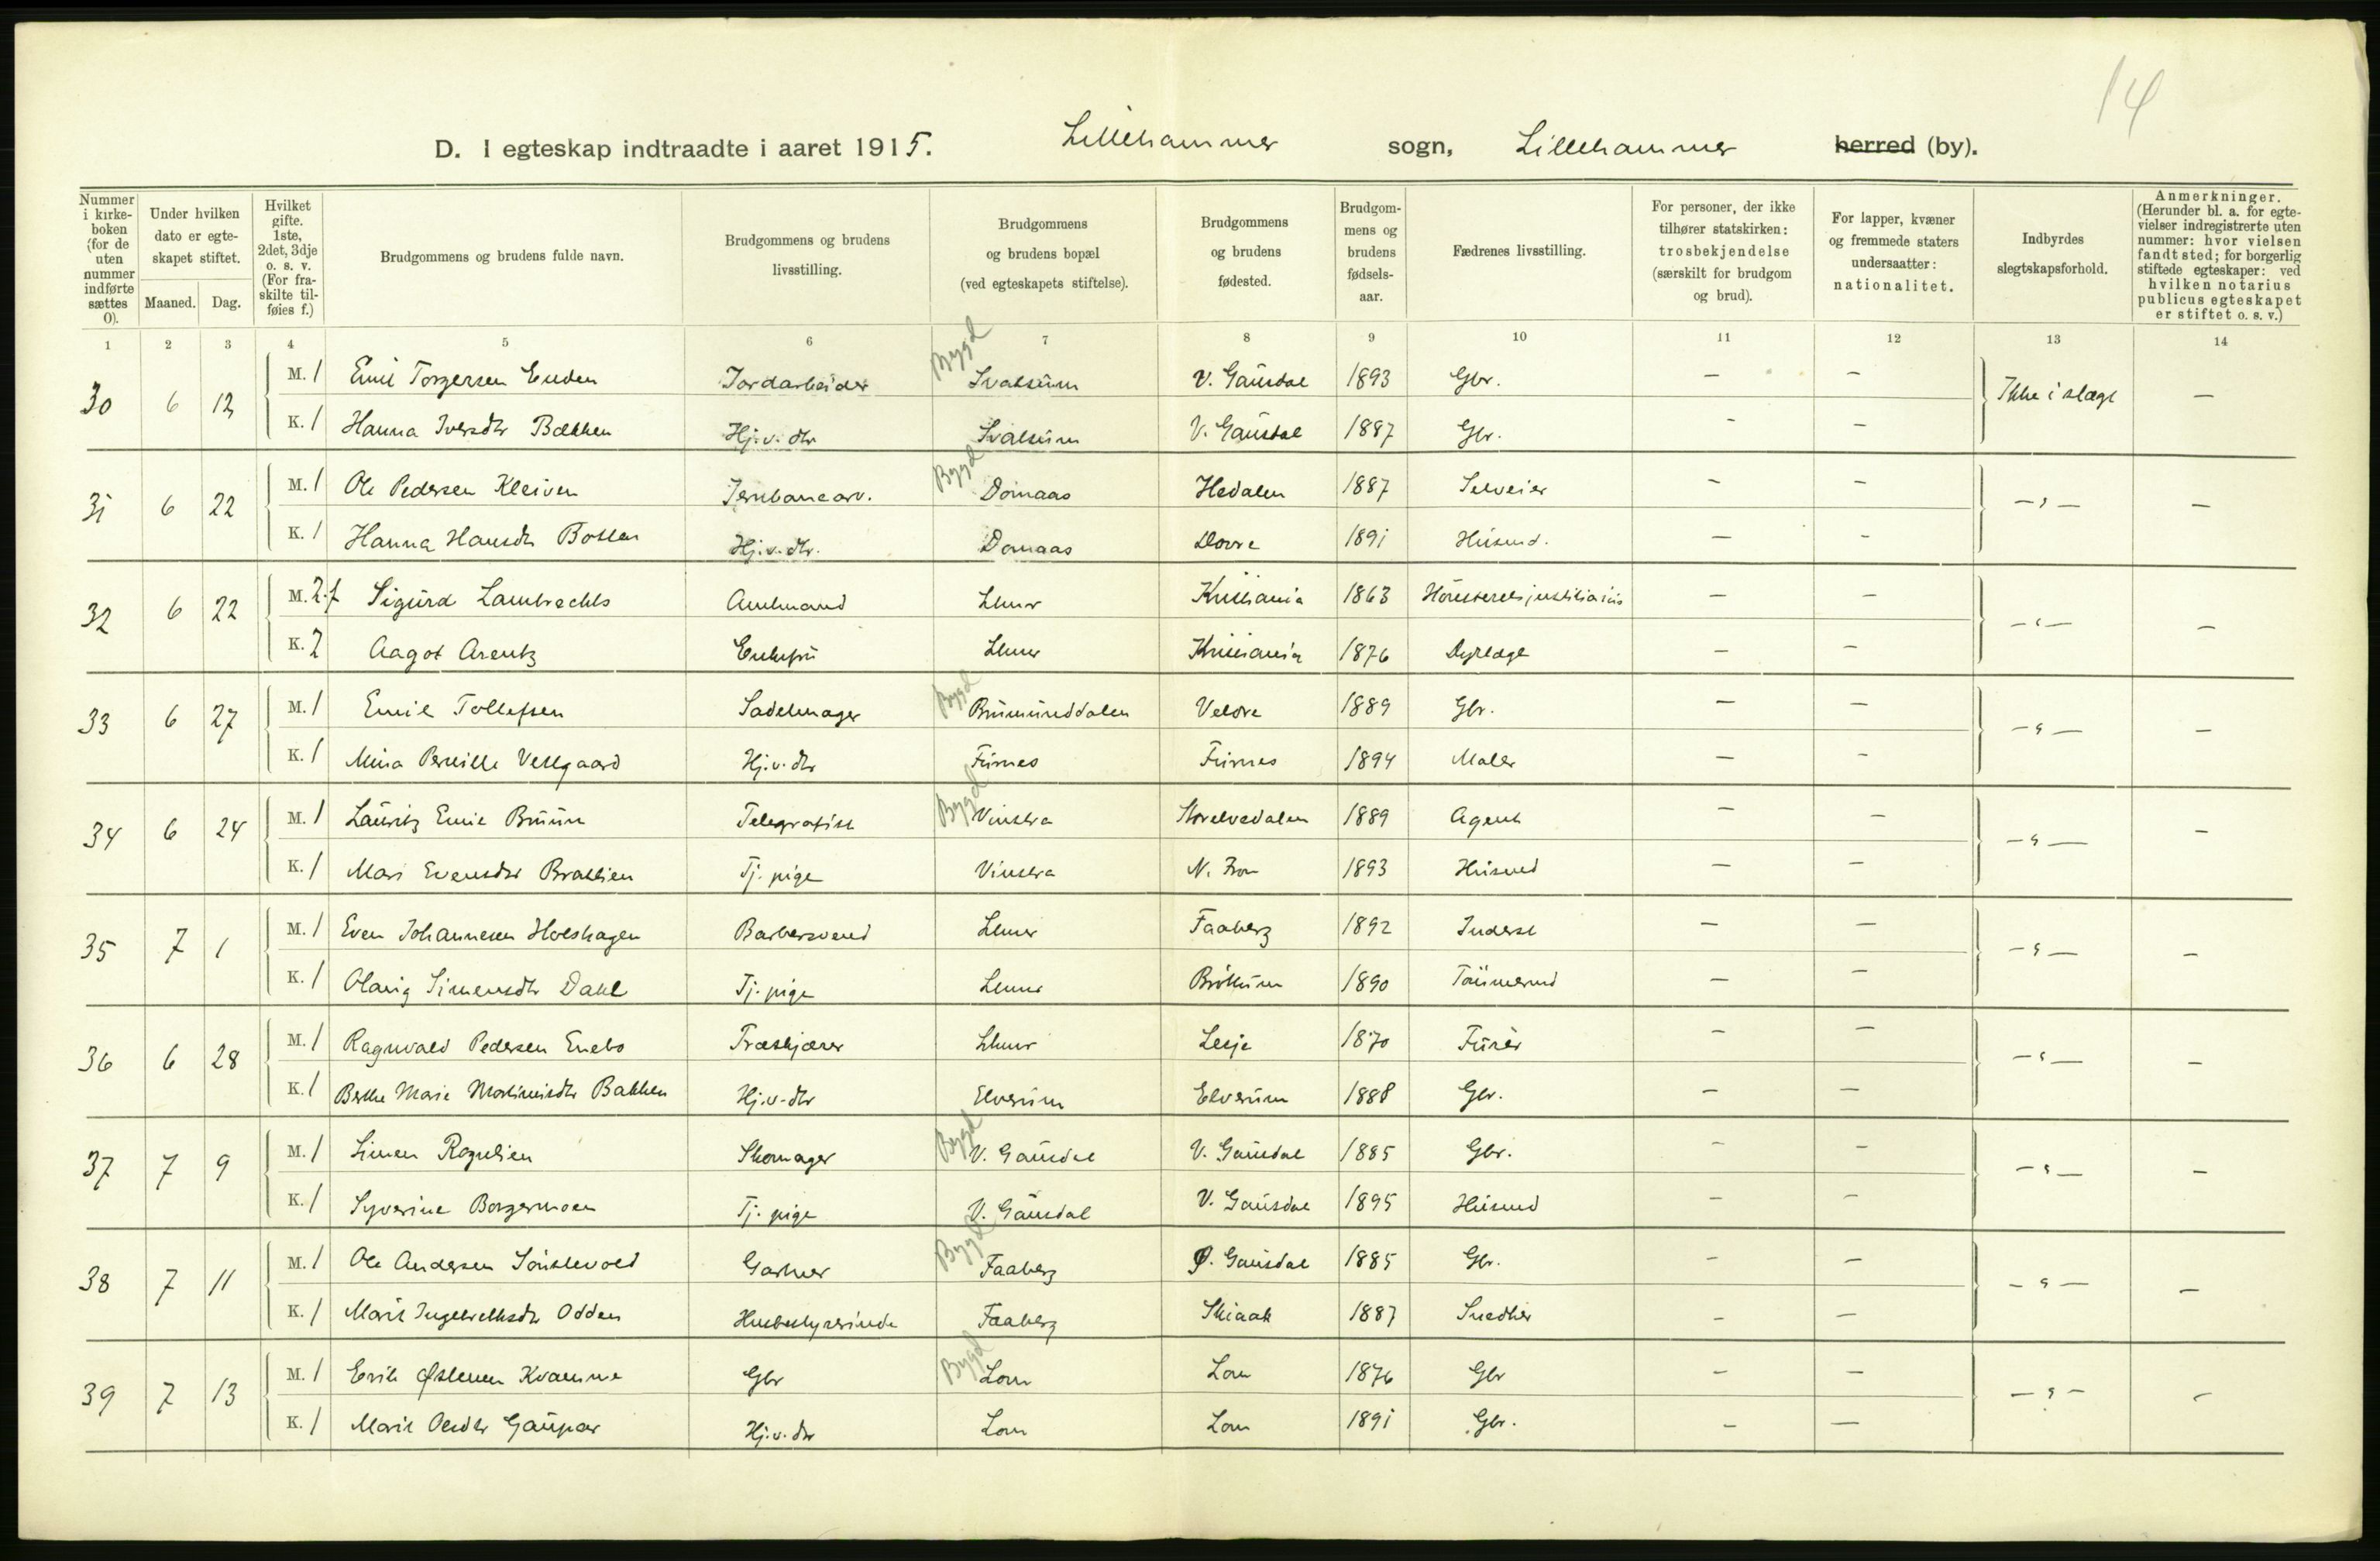 14
D. I egteskap indtraadte i aaret 1915. Lillehammer sogn, Lillehammer herred (by).
Nummer i kirke-boken (for de uten nummer indførte sættes 0). Under hvilken dato er egte-skapet stiftet. Maaned. Dag. Hvilket gifte. 1ste, 2det, 3dje o. s. v. (For fra-skilte til-føies f.) Brudgommens og brudens fulde navn. Brudgommens og brudens livsstilling. Brudgommens og brudens bopæl (ved egteskapets stiftelse). Brudgommens og brudens fødested. Brudgom-mens og brudens fødsels-aar. Fædrenes livsstilling. For personer, der ikke tilhører statskirken: trosbekjendelse (særskilt for brudgom og brud). For lapper, kvæner og fremmede staters undersaatter: nationalitet. Indbyrdes slegtskapsforhold. Anmerkninger. (Herunder bl. a. for egte-vielser indregistrerte uten nummer: hvor vielsen fandt sted; for borgerlig stiftede egteskaper: ved hvilken notarius publicus egteskapet er stiftet o. s. v.)
1 2 3 4 5 6 7 8 9 10 11 12 13 14
30 6 12 M. 1 Emil Torgersen Enden Jordarbeider Bygd Svatsum V. Gausdal 1893 Gbr. — — Ikke i slægt —
K. 1 Hanna Iversdtr Bækken Hj.v. dtr Svatsum V. Gausdal 1887 Gbr. - —
31 6 22 M. 1 Ole Pedersen Kleiven Jernbanearb. Bygd Domaas Hedalen 1887 Selveier - — — " — —
K. 1 Hanna Hansdtr Hj.v. dtr. Domaas Dovre 1891 Husmd. — -
32 6 22 M. 2.f Sigurd Lambrechts Amtmand Lhmr Kristiania 1863 Höiesteretsjustitiarius — — — " — —
K. 2 Aagot Arentz Enkefru Lhmr Kristiania 1876 Dyrlæge — —
33 6 27 M. 1 Emil Tollefsen Sadelmager Bygd Brumunddalen Veldre 1889 Gbr. — — — " — —
K. 1 Mina Pernille Vestgaard Hj.v. dtr Furnes Furnes 1894 Maler — -
34 6 24 M. 1 Lauritz Emil Bruun Telegrafist Bygd Vinstra Storelvedalen 1889 Agent — — — " — —
K. 1 Mari Evensdtr Tj. pige Vinstra N. Fron 1893 Husmd — —
35 7 1 M. 1 Even Johannesen Holshagen Barbersvend Lhmr Faaberg 1892 Inderst — — — " — —
K. 1 Simensdtr Dahl Tj. pige Lhmr Bröttum 1890 Tömmermd — —
36 6 28 M. 1 Ragnvald Pedersen Enebo Træskjærer Lhmr Lesje 1870 Furér — — — " — —
K. 1 Berthe Marie Martinisdtr Bakken Hj.v. dtr Elverum Elverum 1888 Gbr. — —
37 7 9 M. 1 Simen Rognlien Skomager Bygd V. Gausdal V. Gausdal 1885 Gbr. - — — " — —
K. 1 Syverine Borgermoen Tj. pige V. Gausdal V. Gausdal 1895 Husmd - —
38 7 11 M. 1 Ole Andersen Gartner Bygd Faaberg Ø. Gausdal 1885 Gbr. - — — " — —
K. 1 Marit Ingebretsdtr Odden Husbestyrerinde Faaberg Skiaak 1887 Snedker — —
39 7 13 M. 1 Erik Østensen Kvamme Gbr Bygd Lom Lom 1876 Gbr — — — " — -
K. 1 Marit Olsdtr Gaupar Hj.v. dtr Lom Lom 1891 Gbr. — —